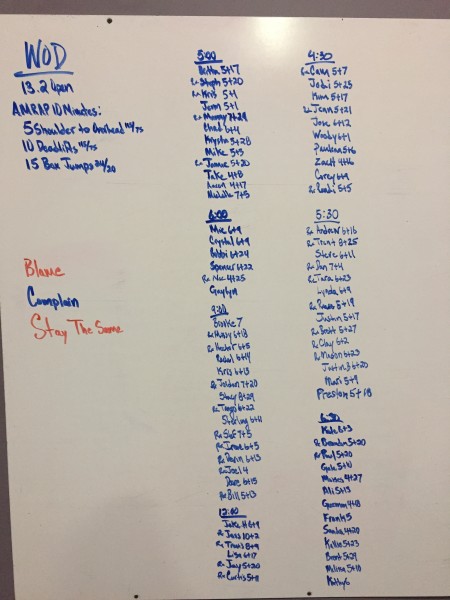 WOD
13.2 Open
AMRAP 10 Minutes:
5 Shoulder to Overhead 115/75
10 Deadlifts 115/75
15 Box Jumps 24/20
Blame
Complain
Stay The Same
5:00
5+17
Rx Steph 5+20
Rx Kris 5+1
Jenn 5+1
Rx Manny 7+29
Chad 6+4
Krysta 5+28
Mike 5+5
Rx Jamie 5+20
Take 4+8
Aaron 4+17
Michelle 7+5
6:00
Mic 6+9
Crystal 6+9
Bobbi 6+24
Spencer 6+22
Rx 4+25
9:30
Brooke 7
Rx 6+18
Rx 6+5
Rachel 6+14
Kris 6+13
Rx Jordan 7+20
Stacy 8+29
Rx 6+22
Sterling 6+11
Rx Stef 7+5
Rx Irene 6+5
Rx Darin 6+13
Rx Joel 4
Dave 6+15
Rx Bill 5+13
12:00
Jake H 6+9
Rx Jans 10+2
Rx Travis 8+9
Lisa 6+17
Rx Jay 5+20
Rx Curtis 5+11
4:30
Rx Cam 5+7
Jodi 5+25
Kim 5+17
Rx Jenn 5+21
Jose 6+12
Woody 6+1
5+6
Zach 4+16
Corey 6+9
Rx Randi 5+5
5:30
Rx Andrew 6+16
Rx Trent 8+25
Steve 6+11
Rx Dan 7+4
Rx Tara 6+23
Lynda 6+9
Rx 5+19
Justin 5+17
Rx Brett 5+27
Rx Clay 6+2
Rx 6+23
Justin B 6+20
Mari 5+9
Preston 5+18
6:30
Kate 8+3
Rx Brandon 5+20
Rx Paul 5+20
Gale 5+11
Moises 4+27
Ali 5+13
4+8
Frank 5
Sandra 4+20
5+23
Brent 5+29
Melissa 5+10
Kathy 6